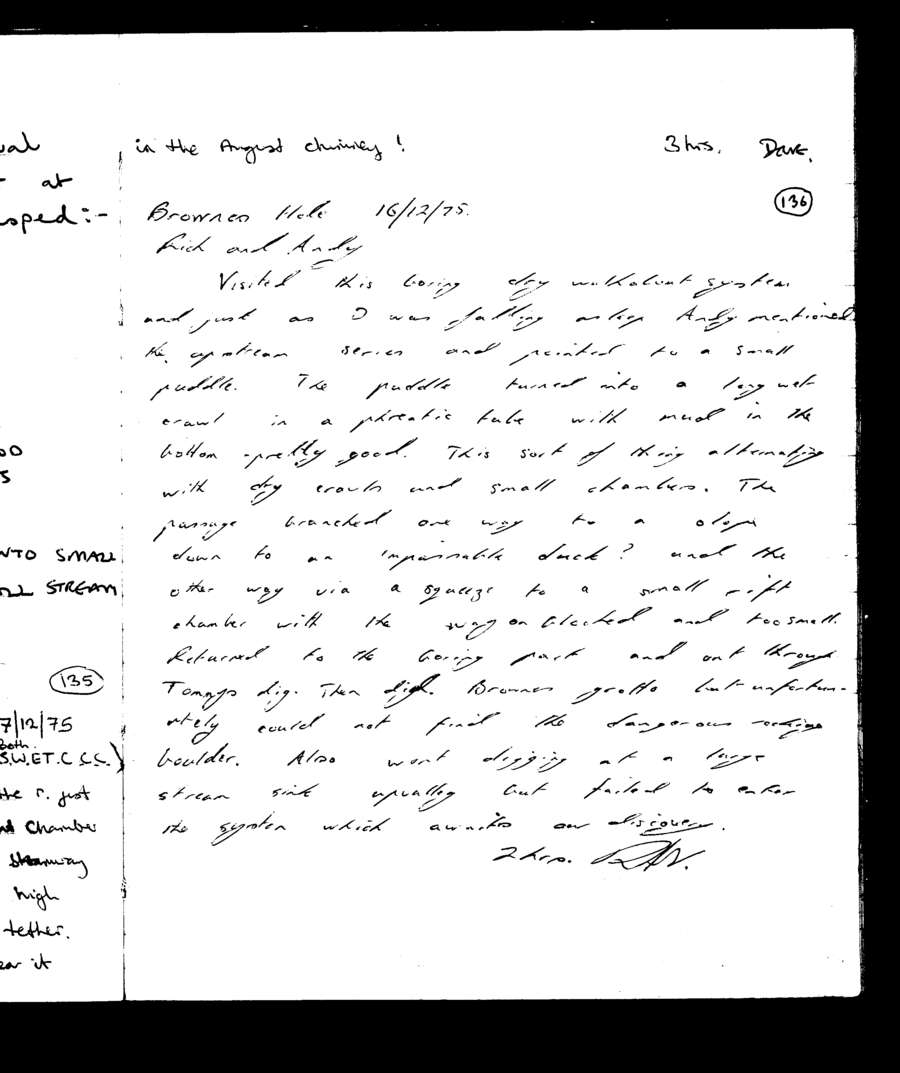 val
at
oped:-
00
S
NTO SMALL
LL STREAM
135
7/12/75
Both
S.W.E.T.C.C.C.)
the r. just
nd Chamber
Steamway
high
tether.
ear it
in the August chimney! 3 hrs. Dave.
136
Brownes Hole 16/12/75.
Rich and Andy
Visited this boring dry walkabout system
and just as I was falling asleep Andy mentioned
the upstream series and pointed to a small
puddle. The puddle turned into a long wet
crawl in a phreatic tube with mud in the
bottom - pretty good. This sort of thing alternating
with dry crawls and small chambers. The
passage branched one way to a slope
down to an impassable duck? and the
other way via a squeeze to a small rift
chamber with the way on blocked and too small.
Returned to the boring part and out through
Tommys dig. Then did. Brownes grotto but unfortun-
ately could not find the dangerous rocking
boulder. Also went digging at a large
stream sink upvalley but failed to enter
the system which awaites our discovery.
2 hrs.